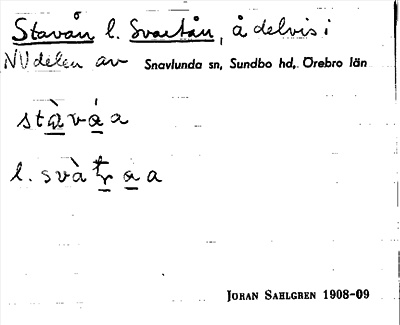 Stavån l. Svartån, å delvis i
NV delen av Snavlunda sn, Sundbo hd, Örebro län
stàváa
l. svàṭṛáa
JORAN SAHLGREN 1908-09